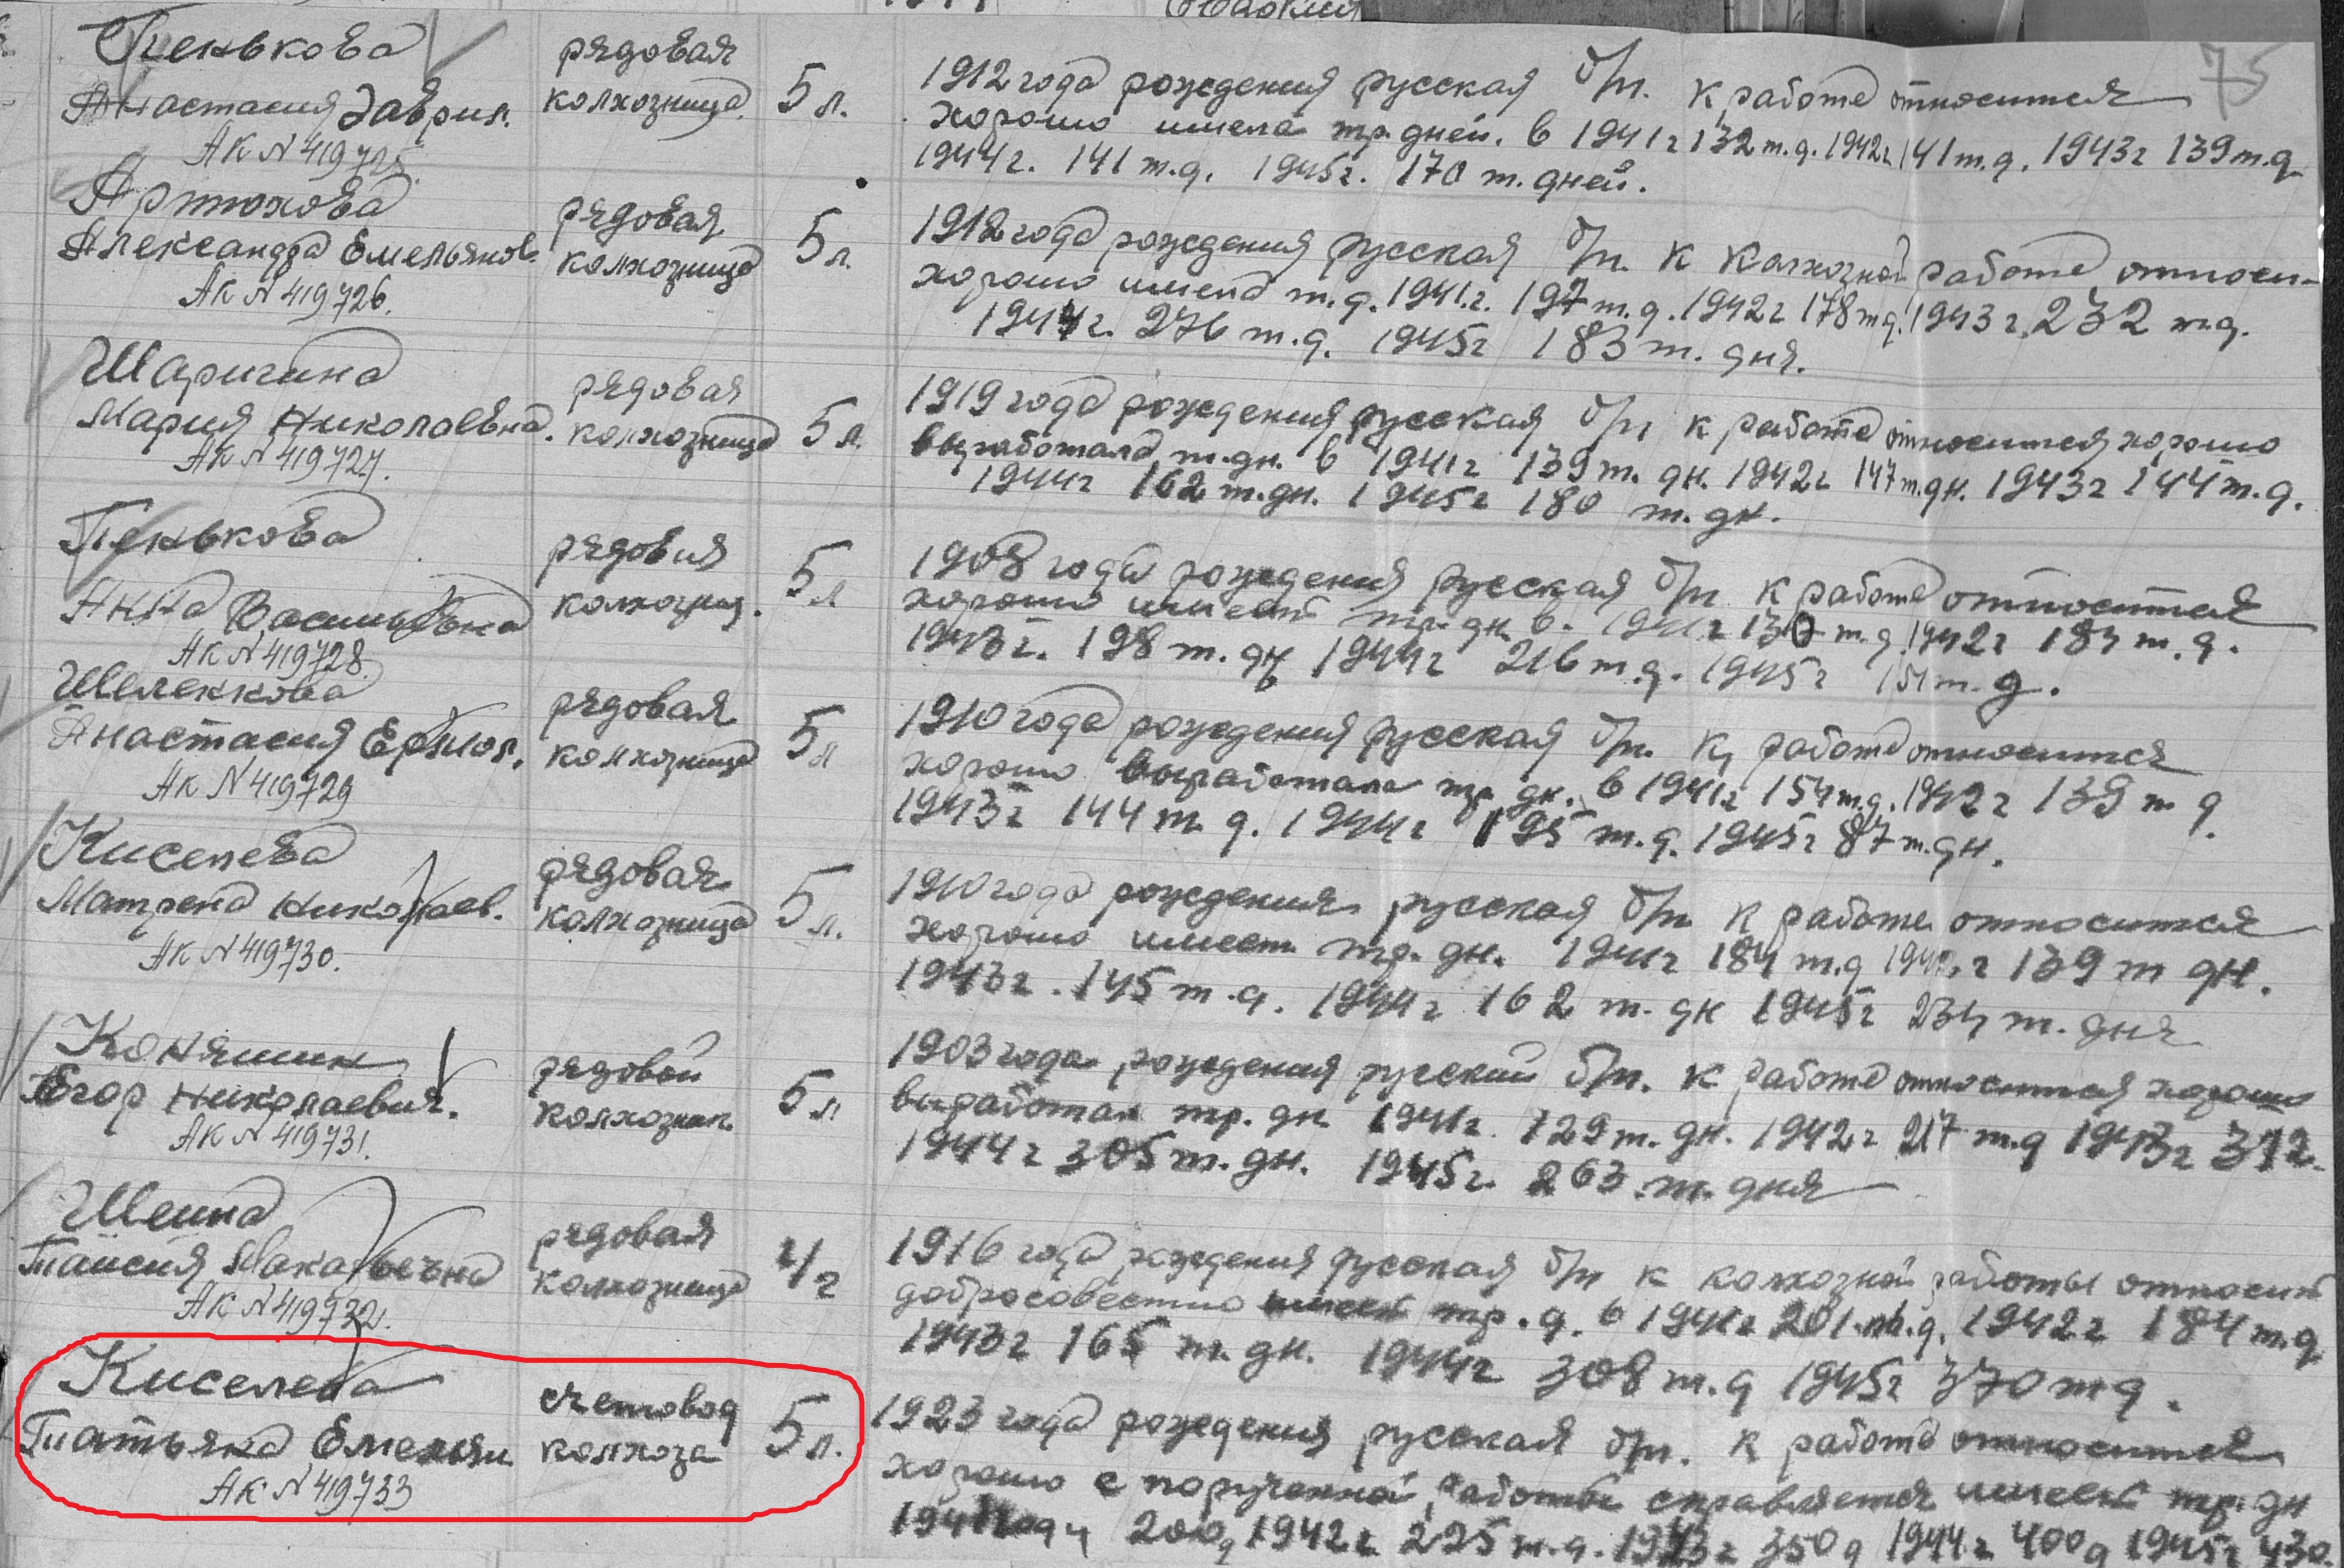 75
Пенькова
Анастасия Гаврил.
АК N 419725.
рядовая
колхозница.
5 л.
1912 года рождения русская б/п. к работе относится
хорошо имела тр. дней. в 1941 г 132 т.д. 1942 г 141 т.д. 1943 г 139 т.д
1944 г. 141 т.д. 1945 г. 170 т. дней.
Артюхова
Александра Емельянов.
АК N 419726.
рядовая
колхозница
5 л.
1912 года рождения русская б/п. к колхозной работе относи-
хорошо имела т.д. 1941 г. 197 т.д. 1942 г 178 т.д. 1943 г. 232 т.д.
1944 г. 276 т.д. 1945 г 183 т. дня.
Шаригина
Мария Николаевна.
АК N 419727.
рядовая
колхозница
5 л.
1919 года рождения русская б/п к работе относится хорошо
выработала т.дн. в 1941 г 139 т. дн. 1942 г 147 т.дн. 1943 г 144 т.д.
1944 г 162 т.дн. 1945 г 180 т. дн.
Пенькова
Анна Васильевна
АК N 419728.
рядовая
колхозниц.
5 л
1908 года рождения русская б/п к работе относится
хорошо имеет тр. дн в. 1941 г 130 т.д 1942 г 184 т.д.
1943 г. 198 т. дн 1944 г 216 т.д. 1945 г 151 т.д.
Шеленкова
Анастасия Ермол.
АК N 419729
рядовая
колхозница
5 л
1910 года рождения русская б/п. к работе относится
хорошо выработала тр. дн. в 1941 г 154 т.д. 1942 г 139 т д
1943 г 144 т.д. 1944 г 195 т.д. 1945 г 87 т.дн.
Киселева
Матрена Николаев.
АК N 419730.
рядовая
колхозница
5 л.
1910 года рождения русская б/п к работе относится
хорошо имеет тр. дн. 1941 г 184 т.д 1942 г 139 т дн.
1943 г. 145 т.д. 1944 г 162 т. дн 1945 г 234 т. дня
Коняшин
Егор Николаевич.
АК N 419731.
рядовой
колхозник.
5 л
1903 года рождения русский б/п. к работе относится хорошо
выработал тр. дн 1941 г. 129 т. дн. 1942 г 217 т.д 1943 г 312.
1944 г 305 т. дн. 1945 г. 263 т. дня
Шеина
Таисия Макарьевна
АК N 419732.
рядовая
колхозница
4/г
1916 года рождения русская б/п к колхозной работы относит
добросовестно имеет тр. д. в 1941 г 201 т.д. 1942 г 184 т.д
1943 г 165 т. дн. 1944 г 308 т.д 1945 г 370 т д.
Киселева
Татьяна Емельян
АК N 419733
счетовод
колхоза
5 л.
1923 года рождения русская б/п. к работе относится
хорошо с порученной работой справляется имеет тр. дн
1941 году 200д 1942 г 225 т.д. 1943 г 350 д 1944 г 400 д 1945 г 430